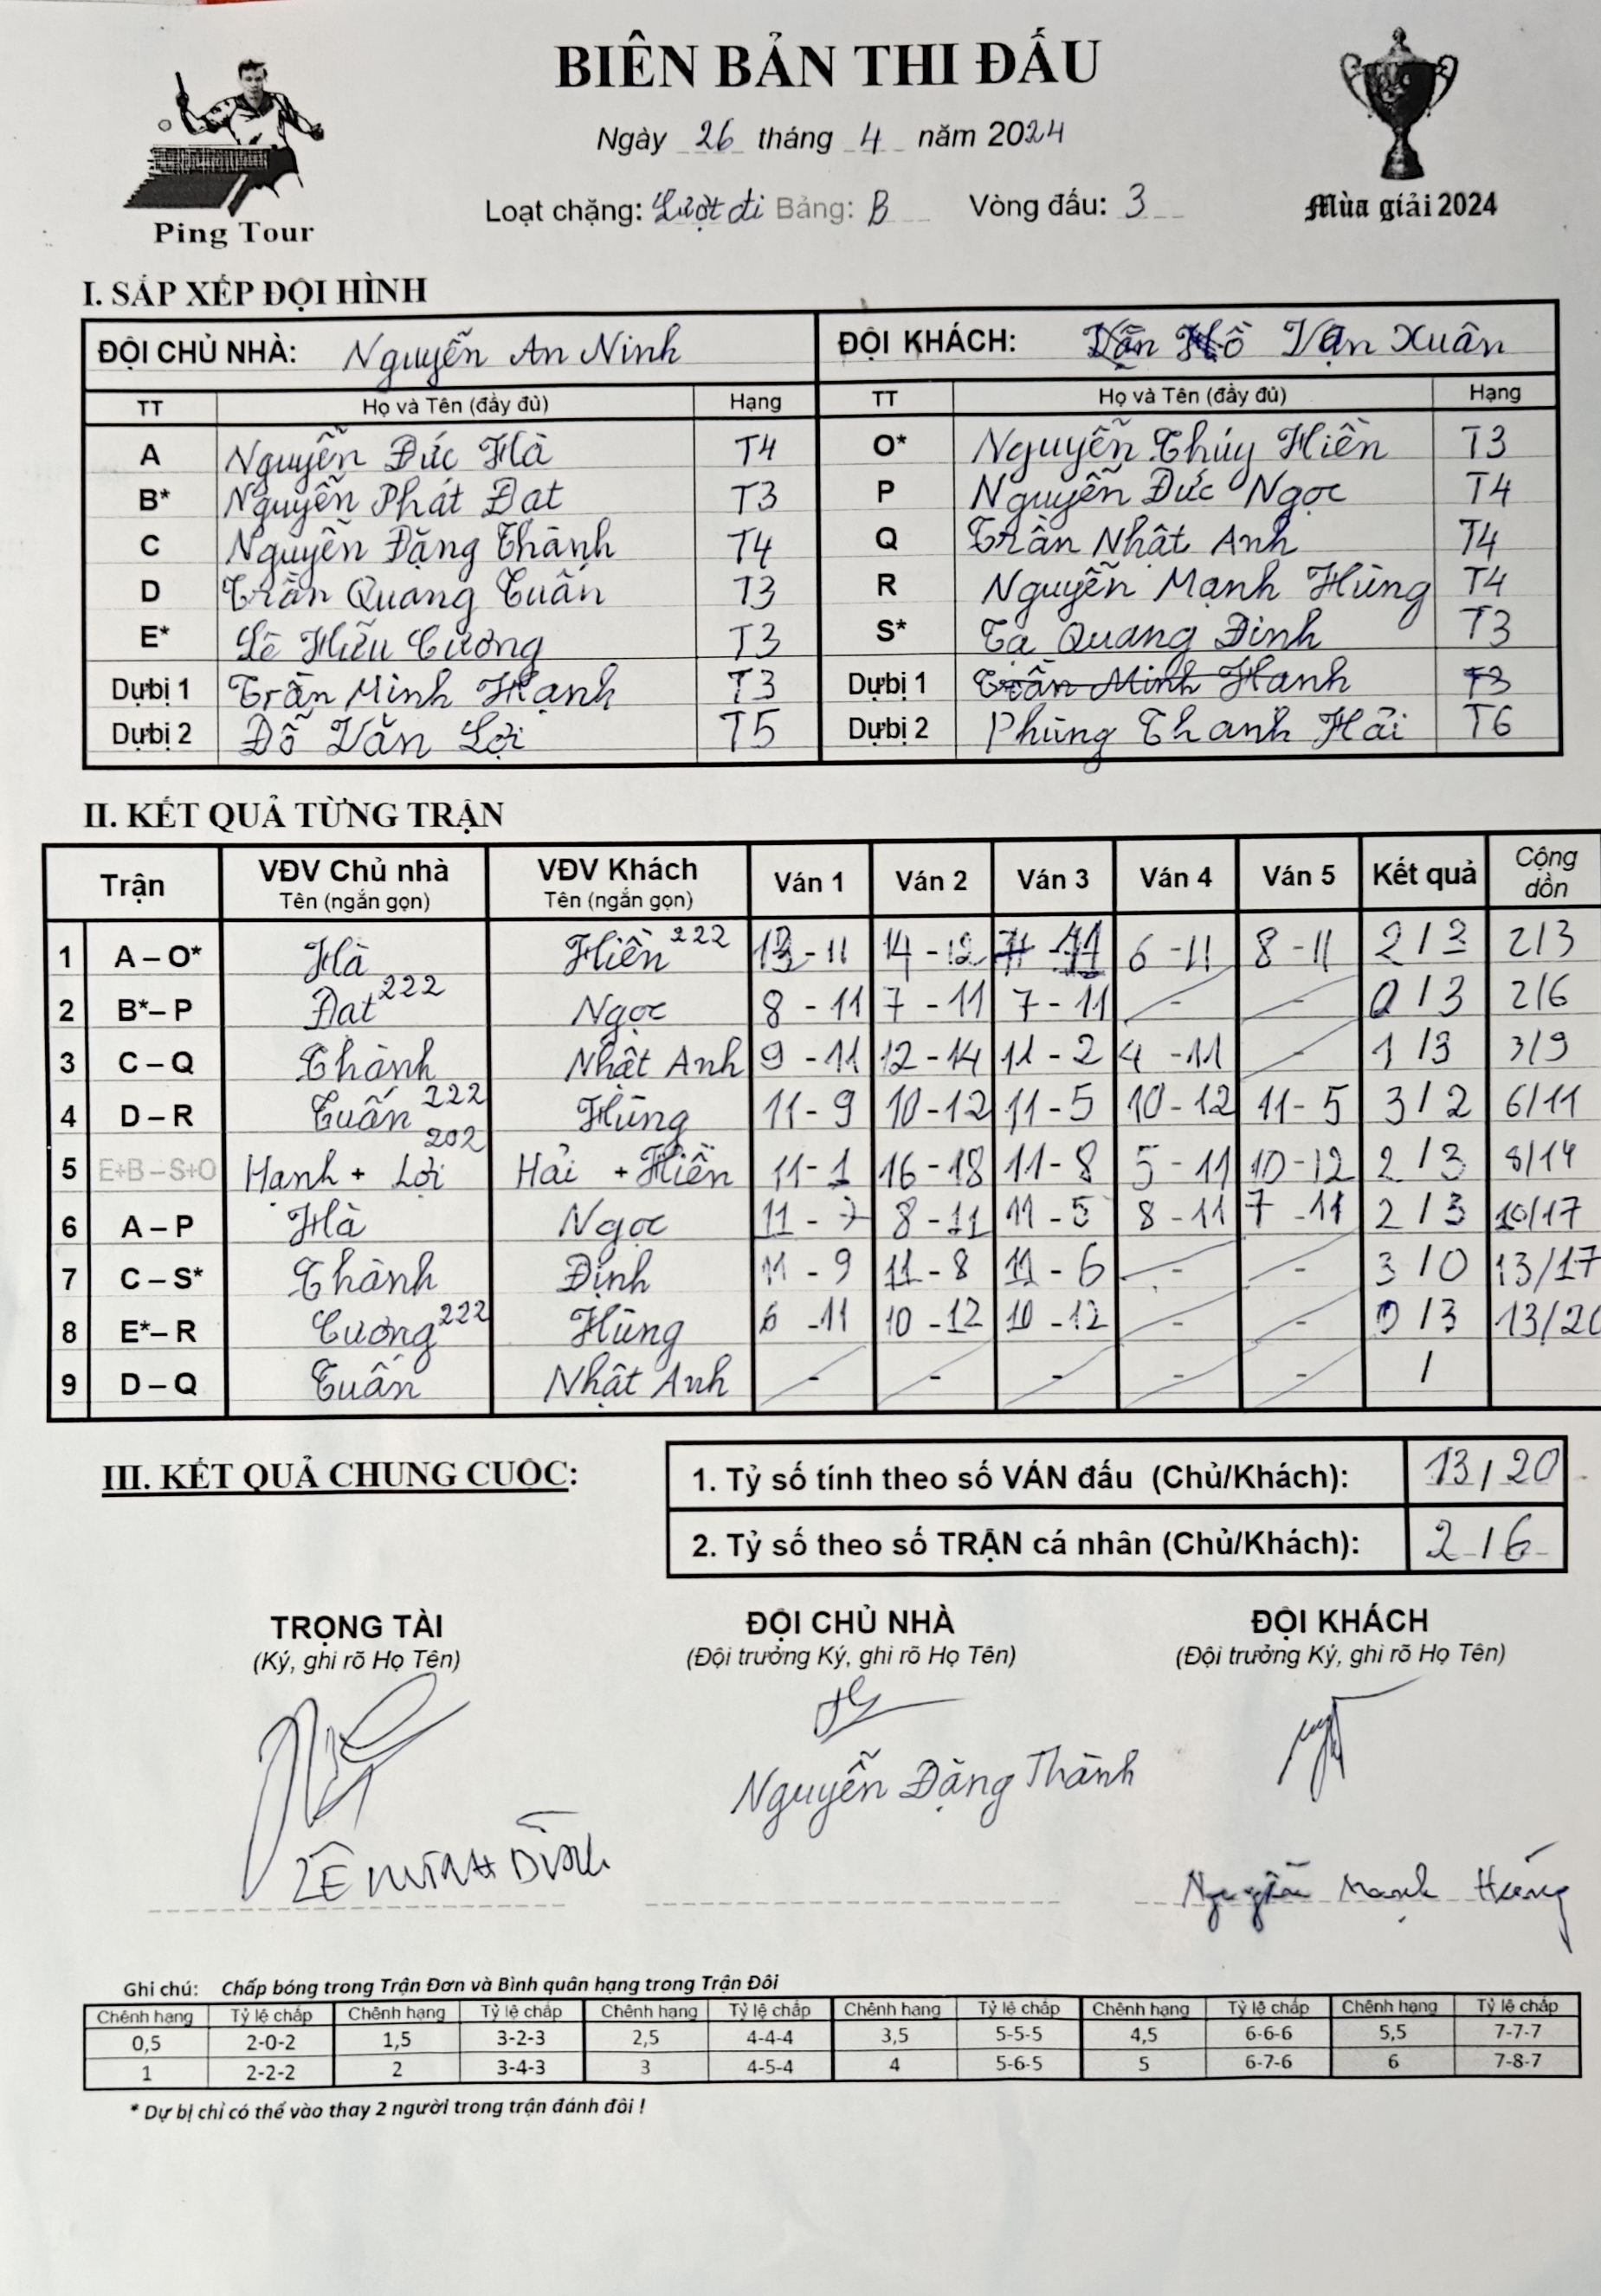 BIÊN BẢN THI ĐẤU
Ngày 26 tháng 4 năm 2024
Loạt chặng: Lượt đi Bảng: B Vòng đấu: 3
Ping Tour
Mùa giải 2024
I. SẮP XẾP ĐỘI HÌNH
ĐỘI CHỦ NHÀ: Nguyễn An Ninh ĐỘI KHÁCH: Vạn Xuân
TT Họ và Tên (đầy đủ) Hạng TT Họ và Tên (đầy đủ) Hạng
A Nguyễn Đức Hà T4 O* Nguyễn Thúy Hiền T3
B* Nguyễn Phát Đạt T3 P Nguyễn Đức Ngọc T4
C Nguyễn Đặng Thành T4 Q Trần Nhật Anh T4
D Trần Quang Tuấn T3 R Nguyễn Mạnh Hùng T4
E* Lê Hữu Cương T3 S* Tạ Quang Định T3
Dự bị 1 Trần Minh Hạnh T3 Dự bị 1 Trần Minh Hạnh T3
Dự bị 2 Đỗ Văn Lợi T5 Dự bị 2 Phùng Thanh Hải T6
II. KẾT QUẢ TỪNG TRẬN
Trận VĐV Chủ nhà Tên (ngắn gọn) VĐV Khách Tên (ngắn gọn) Ván 1 Ván 2 Ván 3 Ván 4 Ván 5 Kết quả Cộng dồn
1 A – O* Hà Hiền 222 13 - 11 14 - 12 - 11 6 - 11 8 - 11 2 / 3 2/3
2 B* – P Đạt 222 Ngọc 8 - 11 7 - 11 7 - 11 - - 0 / 3 2/6
3 C – Q Thành Nhật Anh 9 - 11 12 - 14 11 - 2 4 - 11 - 1 / 3 3/9
4 D – R Tuấn 222 Hùng 11 - 9 10 - 12 11 - 5 10 - 12 11 - 5 3 / 2 6/11
5 E+B – S+O Hạnh + Lợi 202 Hải + Hiền 11 - 1 16 - 18 11 - 8 5 - 11 10 - 12 2 / 3 8/14
6 A – P Hà Ngọc 11 - 7 8 - 11 11 - 5 8 - 11 7 - 11 2 / 3 10/17
7 C – S* Thành Định 11 - 9 11 - 8 11 - 6 - - 3 / 0 13/17
8 E* – R Cương 222 Hùng 6 - 11 10 - 12 10 - 12 - - 0 / 3 13/20
9 D – Q Tuấn Nhật Anh - - - - - /
III. KẾT QUẢ CHUNG CUỘC:
1. Tỷ số tính theo số VÁN đấu (Chủ/Khách): 13 / 20
2. Tỷ số theo số TRẬN cá nhân (Chủ/Khách): 2 / 6
TRỌNG TÀI ĐỘI CHỦ NHÀ ĐỘI KHÁCH
(Ký, ghi rõ Họ Tên) (Đội trưởng Ký, ghi rõ Họ Tên) (Đội trưởng Ký, ghi rõ Họ Tên)
Nguyễn Đặng Thành
LÊ MINH Nguyễn Mạnh Hùng
Ghi chú: Chấp bóng trong Trận Đơn và Bình quân hạng trong Trận Đôi
Chênh hạng Tỷ lệ chấp Chênh hạng Tỷ lệ chấp Chênh hạng Tỷ lệ chấp Chênh hạng Tỷ lệ chấp Chênh hạng Tỷ lệ chấp Chênh hạng Tỷ lệ chấp
0,5 2-0-2 1,5 3-2-3 2,5 4-4-4 3,5 5-5-5 4,5 6-6-6 5,5 7-7-7
1 2-2-2 2 3-4-3 3 4-5-4 4 5-6-5 5 6-7-6 6 7-8-7
* Dự bị chỉ có thể vào thay 2 người trong trận đánh đôi !